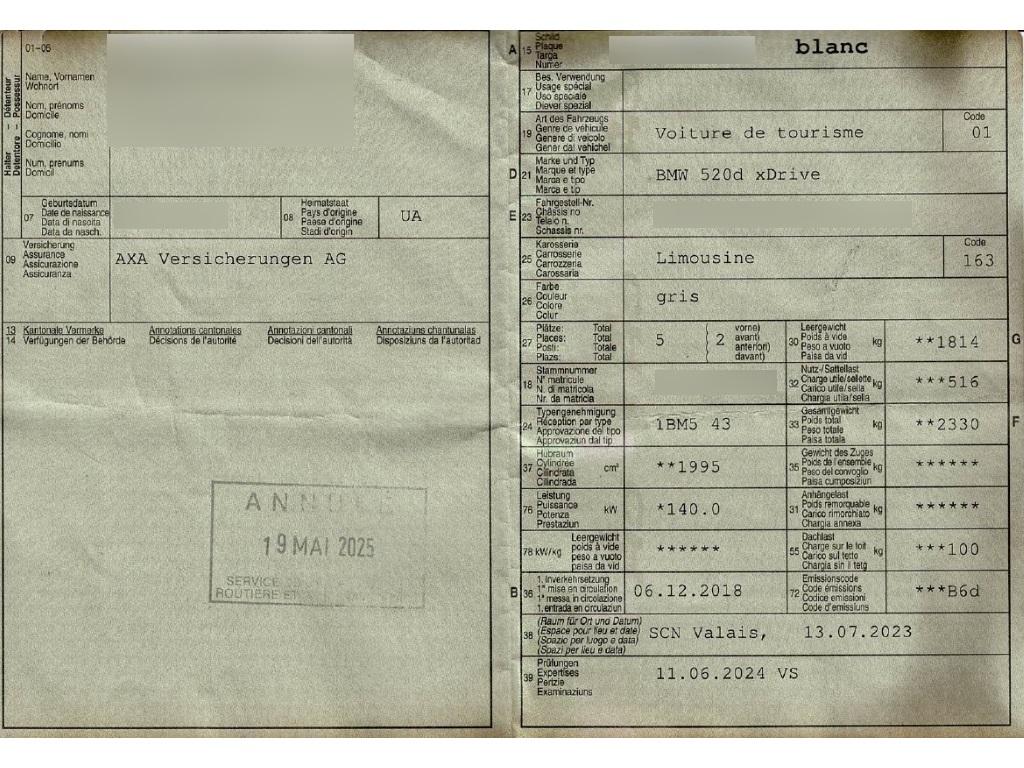 01-05
Halter – Détenteur
Detentore – Possessur
Name, Vornamen
Wohnort
Nom, prénoms
Domicile
Cognome, nomi
Domicilio
Num, prenums
Domicil
07
Geburtsdatum
Date de naissance
Data di nascita
Data da nasch.
08
Heimatstaat
Pays d'origine
Paese d'origine
Stadi d'origin
UA
09
Versicherung
Assurance
Assicurazione
Assicuranza
AXA Versicherungen AG
13 Kantonale Vermerke Annotations cantonales Annotazioni cantonali Annotaziuns chantunalas
14 Verfügungen der Behörde Décisions de l'autorité Decisioni dell'autorità Disposiziuns da l'autoritad
19 MAI 2025
SERVICE
ROUTIERE ET
A 15
Schild
Plaque
Targa
Numer
blanc
17
Bes. Verwendung
Usage spécial
Uso speciale
Diever spezial
19
Art des Fahrzeugs
Genre de véhicule
Genere di veicolo
Gener dal vehichel
Voiture de tourisme
Code
01
D 21
Marke und Typ
Marque et type
Marca e tipo
Marca e tip
BMW 520d xDrive
E 23
Fahrgestell-Nr.
Châssis no
Telaio n.
Schassis nr.
25
Karosserie
Carrosserie
Carrozzeria
Carossaria
Limousine
Code
163
26
Farbe
Couleur
Colore
Colur
gris
27
Plätze: Total
Places: Total
Posti: Totale
Plazs: Total
5
2
vorne)
avant)
anteriori)
davant)
30
Leergewicht
Poids à vide
Peso a vuoto
Paisa da vid
kg
**1814
G
18
Stammnummer
N° matricule
N. di matricola
Nr. da matricla
32
Nutz-/Sattellast
Charge utile/sellette
Carico utile/sella
Chargia utila/sella
kg
***516
24
Typengenehmigung
Réception par type
Approvazione del tipo
Approvaziun dal tip
1BM5 43
33
Gesamtgewicht
Poids total
Peso totale
Paisa totala
kg
**2330
F
37
Hubraum
Cylindrée
Cilindrata
Cilindrada
cm³
**1995
35
Gewicht des Zuges
Poids de l'ensemble
Peso del convoglio
Paisa cumposiziun
kg
******
76
Leistung
Puissance
Potenza
Prestaziun
kW
*140.0
31
Anhängelast
Poids remorquable
Carico rimorchiato
Chargia annexa
kg
******
78 kW/kg
Leergewicht
poids à vide
peso a vuoto
paisa da vid
******
55
Dachlast
Charge sur le toit
Carico sul tetto
Chargia sin il tetg
kg
***100
B 36
1. Inverkehrsetzung
1re mise en circulation
1a messa in circolazione
1. entrada en circulaziun
06.12.2018
72
Emissionscode
Code émissions
Codice emissioni
Code d'emissiuns
***B6d
38
(Raum für Ort und Datum)
(Espace pour lieu et date)
(Spazio per luogo e data)
(Spazi per lieu e data)
SCN Valais, 13.07.2023
39
Prüfungen
Expertises
Perizie
Examinaziuns
11.06.2024 VS